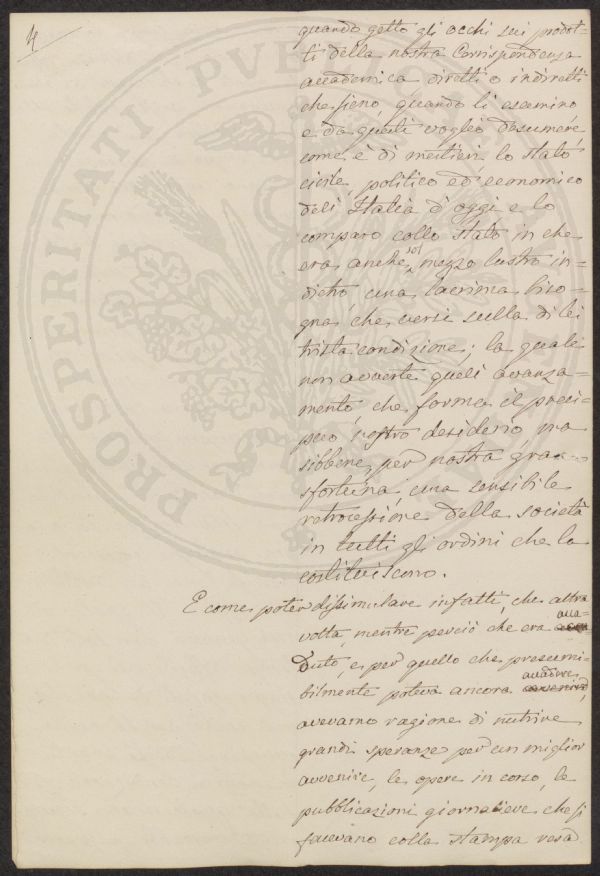 4
quando getto gli occhi sui prodot-
ti della nostra Corrispondenza
accademica diretti o indiretti
che sieno, quando li esamino
e da questi voglio desumere
come è di mestieri lo stato
civile, politico ed economico
dell'Italia d'oggi e lo
comparo collo stato in che
era anche sol mezzo lustro in-
dietro una lacrima biso-
gna che versi sulla di lei
trista condizione; la quale
non avverte quell'avanza-
mento che forma il preci-
puo nostro desiderio ma
sibbene, per nostra gran
sfortuna una sensibile
retrocessione della società
in tutti gli ordini che la
costituiscono.
E come poter dissimulare infatti, che altra
volta, mentre perciò che era acca-
duto, e per quello che presumi-
bilmente poteva ancora accadere,
avevamo ragione di nutrire
grandi speranze per un miglior
avvenire, le opere in corso, le
pubblicazioni giornaliere che si
facevano colla stampa resa
PROSPERITATI PVBLICAE